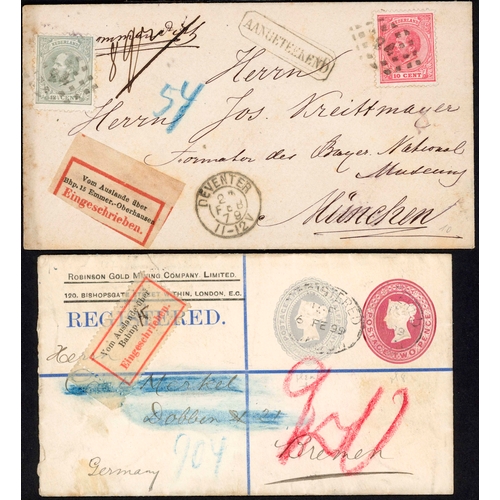 NEDERLAND
AANGETEEKEND
NEDERLAND
10 CENT
Herrn
54
Herrn Jos. Kreittmayer
Formator des Bayer. National
Museums
München
Vom Auslande über
Bhp. 15 Emmer.-Oberhausen
Eingeschrieben.
DEVENTER
FEB
11-12V
ROBINSON GOLD MINING COMPANY LIMITED.
120. BISHOPSGATE STREET WITHIN, LONDON, E.C.
REGISTERED.
Vom Auslande über
Eingeschrieben.
REGISTERED
6 FE 99
POSTAGE TWO PENCE
Herrn
Dobben
Bremen
904
Germany